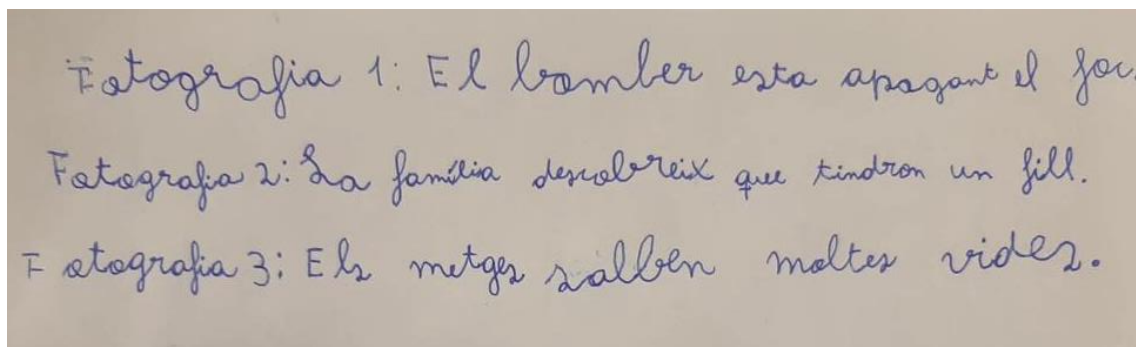 Fotografia 1: El bomber esta apagant el foc.
Fotografia 2: La família descobreix que tindron un fill.
Fotografia 3: Els metges salben moltes vides.